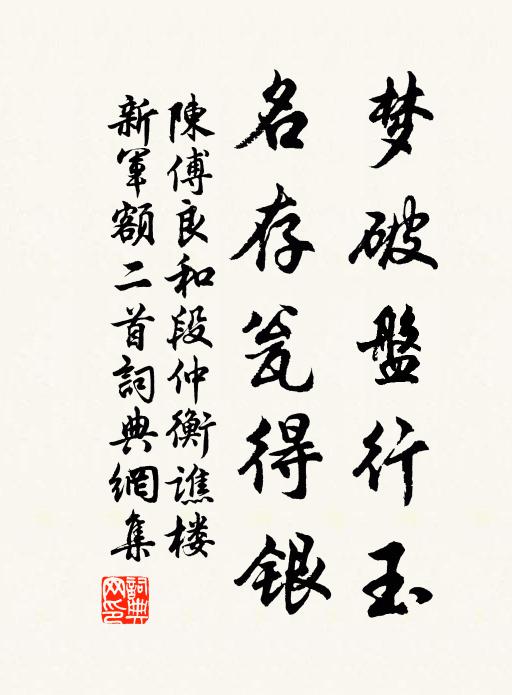 梦破盤行玉
名存瓮得銀
陳傅良和段仲衡譙楼
新軍額二首詞典網集
詞典网印